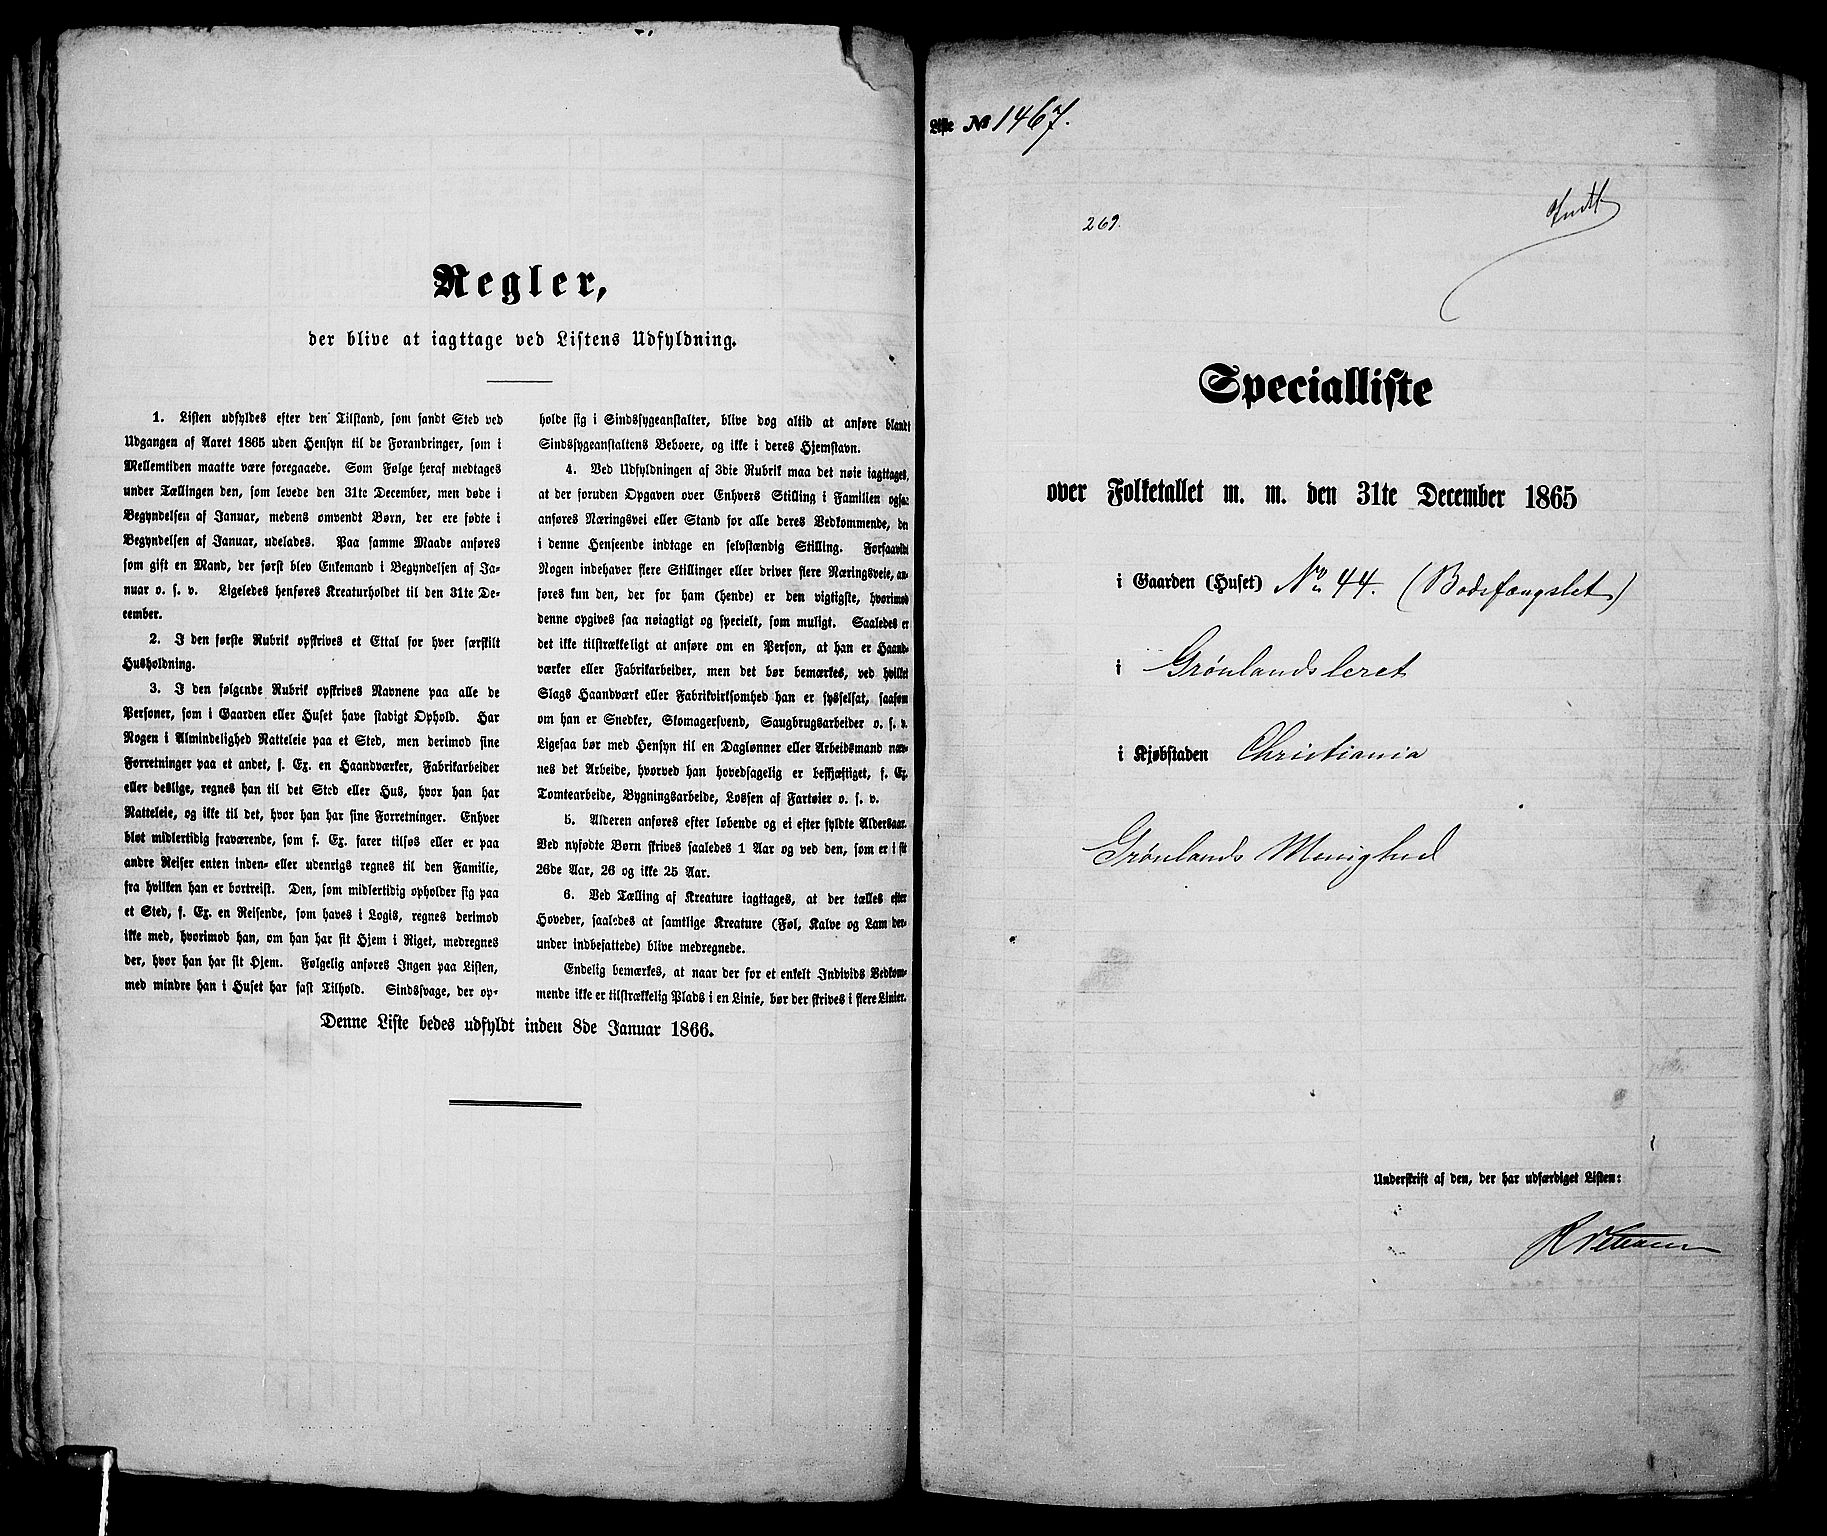 Regler,
der blive at iagttage ved Listens Udfyldning.
1. Listen udfyldes efter den Tilstand, som fandt Sted ved
Udgangen af Aaret 1865 uden Hensyn til de Forandringer, som i
Mellemtiden maatte være foregaaede. Som Følge heraf medtages
under Tællingen den, som levede den 31te December, men døde i
Begyndelsen af Januar, medens omvendt Børn, der ere fødte i
Begyndelsen af Januar, udelades. Paa samme Maade anføres
som gift en Mand, der først blev Enkemand i Begyndelsen af Ja-
nuar o. s. v. Ligeledes henføres Kreaturholdet til den 31te De-
cember.
2. I den første Rubrik opskrives et Ettal for hver særskilt
Husholdning.
3. I den følgende Rubrik opskrives Navnene paa alle de
Personer, som i Gaarden eller Huset have stadigt Ophold. Har
Nogen i Almindelighed Natteleie paa et Sted, men derimod sine
Forretninger paa et andet, f. Ex. en Haandværker, Fabrikarbeider
eller deslige, regnes han til det Sted eller Hus, hvor han har
Natteleie, og ikke til det, hvor han har sine Forretninger. Enhver
blot midlertidig fraværende, som f. Ex. farer tilsøs eller er paa
andre Reiser enten inden- eller udenrigs regnes til den Familie,
fra hvilken han er bortreist. Den, som midlertidig opholder sig paa
et Sted, f. Ex. en Reisende, som haves i Logis, regnes derimod
ikke med, hvorimod han, om han har sit Hjem i Riget, medregnes
der, hvor han har sit Hjem. Følgelig anføres Ingen paa Listen,
med mindre han i Huset har fast Tilhold. Sindssvage, der op-
holde sig i Sindssygeanstalter, blive dog altid at anføre blandt
Sindssygeanstaltens Beboere, og ikke i deres Hjemstavn.
4. Ved Udfyldningen af 3die Rubrik maa det nøie iagttages,
at der foruden Opgaven over Enhvers Stilling i Familien ogsaa
anføres Næringsvei eller Stand for alle deres Vedkommende, der
i denne Henseende indtage en selvstændig Stilling. Forsaavidt
Nogen indehaver flere Stillinger eller driver flere Næringsveie, an-
føres kun den, der for ham (hende) er den vigtigste, hvorimod
denne opgives saa nøiagtigt og specielt, som muligt. Saaledes er
det ikke tilstrækkeligt at anføre om en Person, at han er Haand-
værker eller Fabrikarbeider, men det bør bemærkes, ved hvilket
Slags Haandværk eller Fabrikvirksomhed han er sysselsat, saasom
om han er Snedker, Skomagersvend, Saugbrugsarbeider o. s. v.
Ligesaa bør med Hensyn til en Daglønner eller Arbeidsmand næv-
nes det Arbeide, hvorved han hovedsagelig er beskjæftiget, f. Ex.
Tomtearbeide, Bygningsarbeide, Lossen af Fartøier o. s. v.
5. Alderen anføres efter løbende og ei efter fyldte Aldersaar.
Ved nyfødte Børn skrives saaledes 1 Aar og ved den, som er i sit
26de Aar, 26 og ikke 25 Aar.
6. Ved Tælling af Kreature iagttages, at der tælles efter
Hoveder, saaledes at samtlige Kreature (Føl, Kalve og Lam der-
under indbefattede) blive medregnede.
Endelig bemærkes, at naar der for et enkelt Individs Vedkom-
mende ikke er tilstrækkelig Plads i en Linie, bør der skrives i flere Linier.
Denne Liste bedes udfyldt inden 8de Januar 1866.
Liste № 1467.
269.
Specialliste
over Folketallet m. m. den 31te December 1865
i Gaarden (Huset) No 44. (Bodsfængslet)
i Grönlandsleret
i Kjøbstaden Christiania
Grönlands Menighed
Underskrift af den, der har udfærdiget Listen: